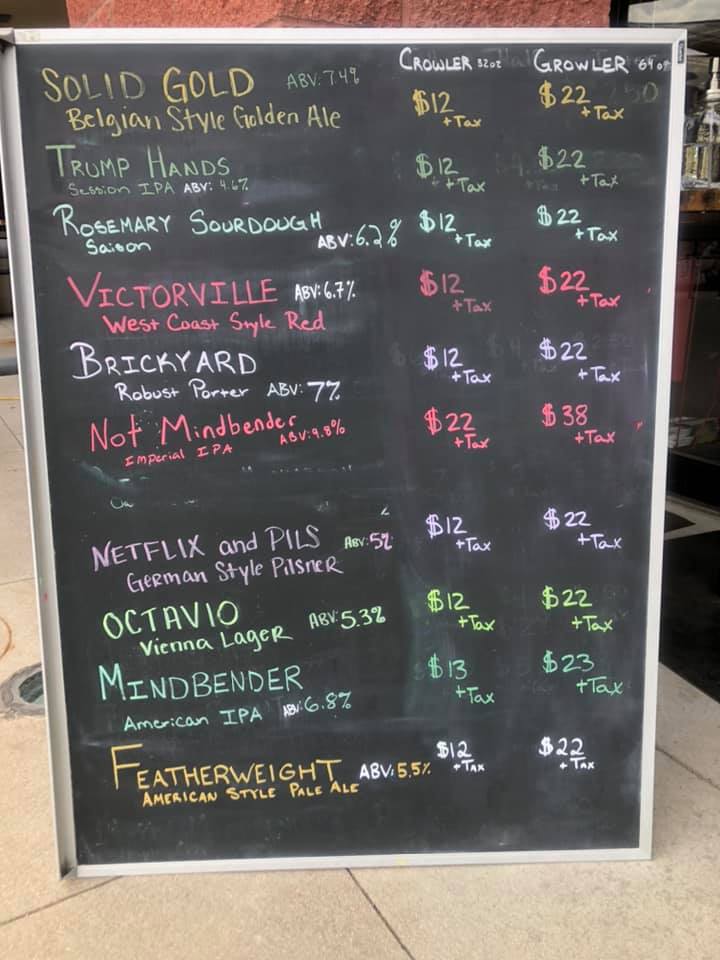 CROWLER 32oz GROWLER 64oz
SOLID GOLD ABV: 7.4% $12 +Tax $22 +Tax
Belgian Style Golden Ale
TRUMP HANDS $12 +Tax $22 +Tax
Session IPA ABV: 4.6%
ROSEMARY SOURDOUGH $12 +Tax $22 +Tax
Saison ABV: 6.2%
VICTORVILLE ABV: 6.7% $12 +Tax $22 +Tax
West Coast Style Red
BRICKYARD $12 +Tax $22 +Tax
Robust Porter ABV: 7%
Not Mindbender ABV: 9.8% $22 +Tax $38 +Tax
Imperial IPA
NETFLIX and PILS ABV: 5% $12 +Tax $22 +Tax
German Style Pilsner
OCTAVIO ABV: 5.3% $12 +Tax $22 +Tax
Vienna Lager
MINDBENDER $13 +Tax $23 +Tax
American IPA ABV: 6.8%
FEATHERWEIGHT ABV: 5.5% $12 +TAX $22 +TAX
AMERICAN STYLE PALE ALE